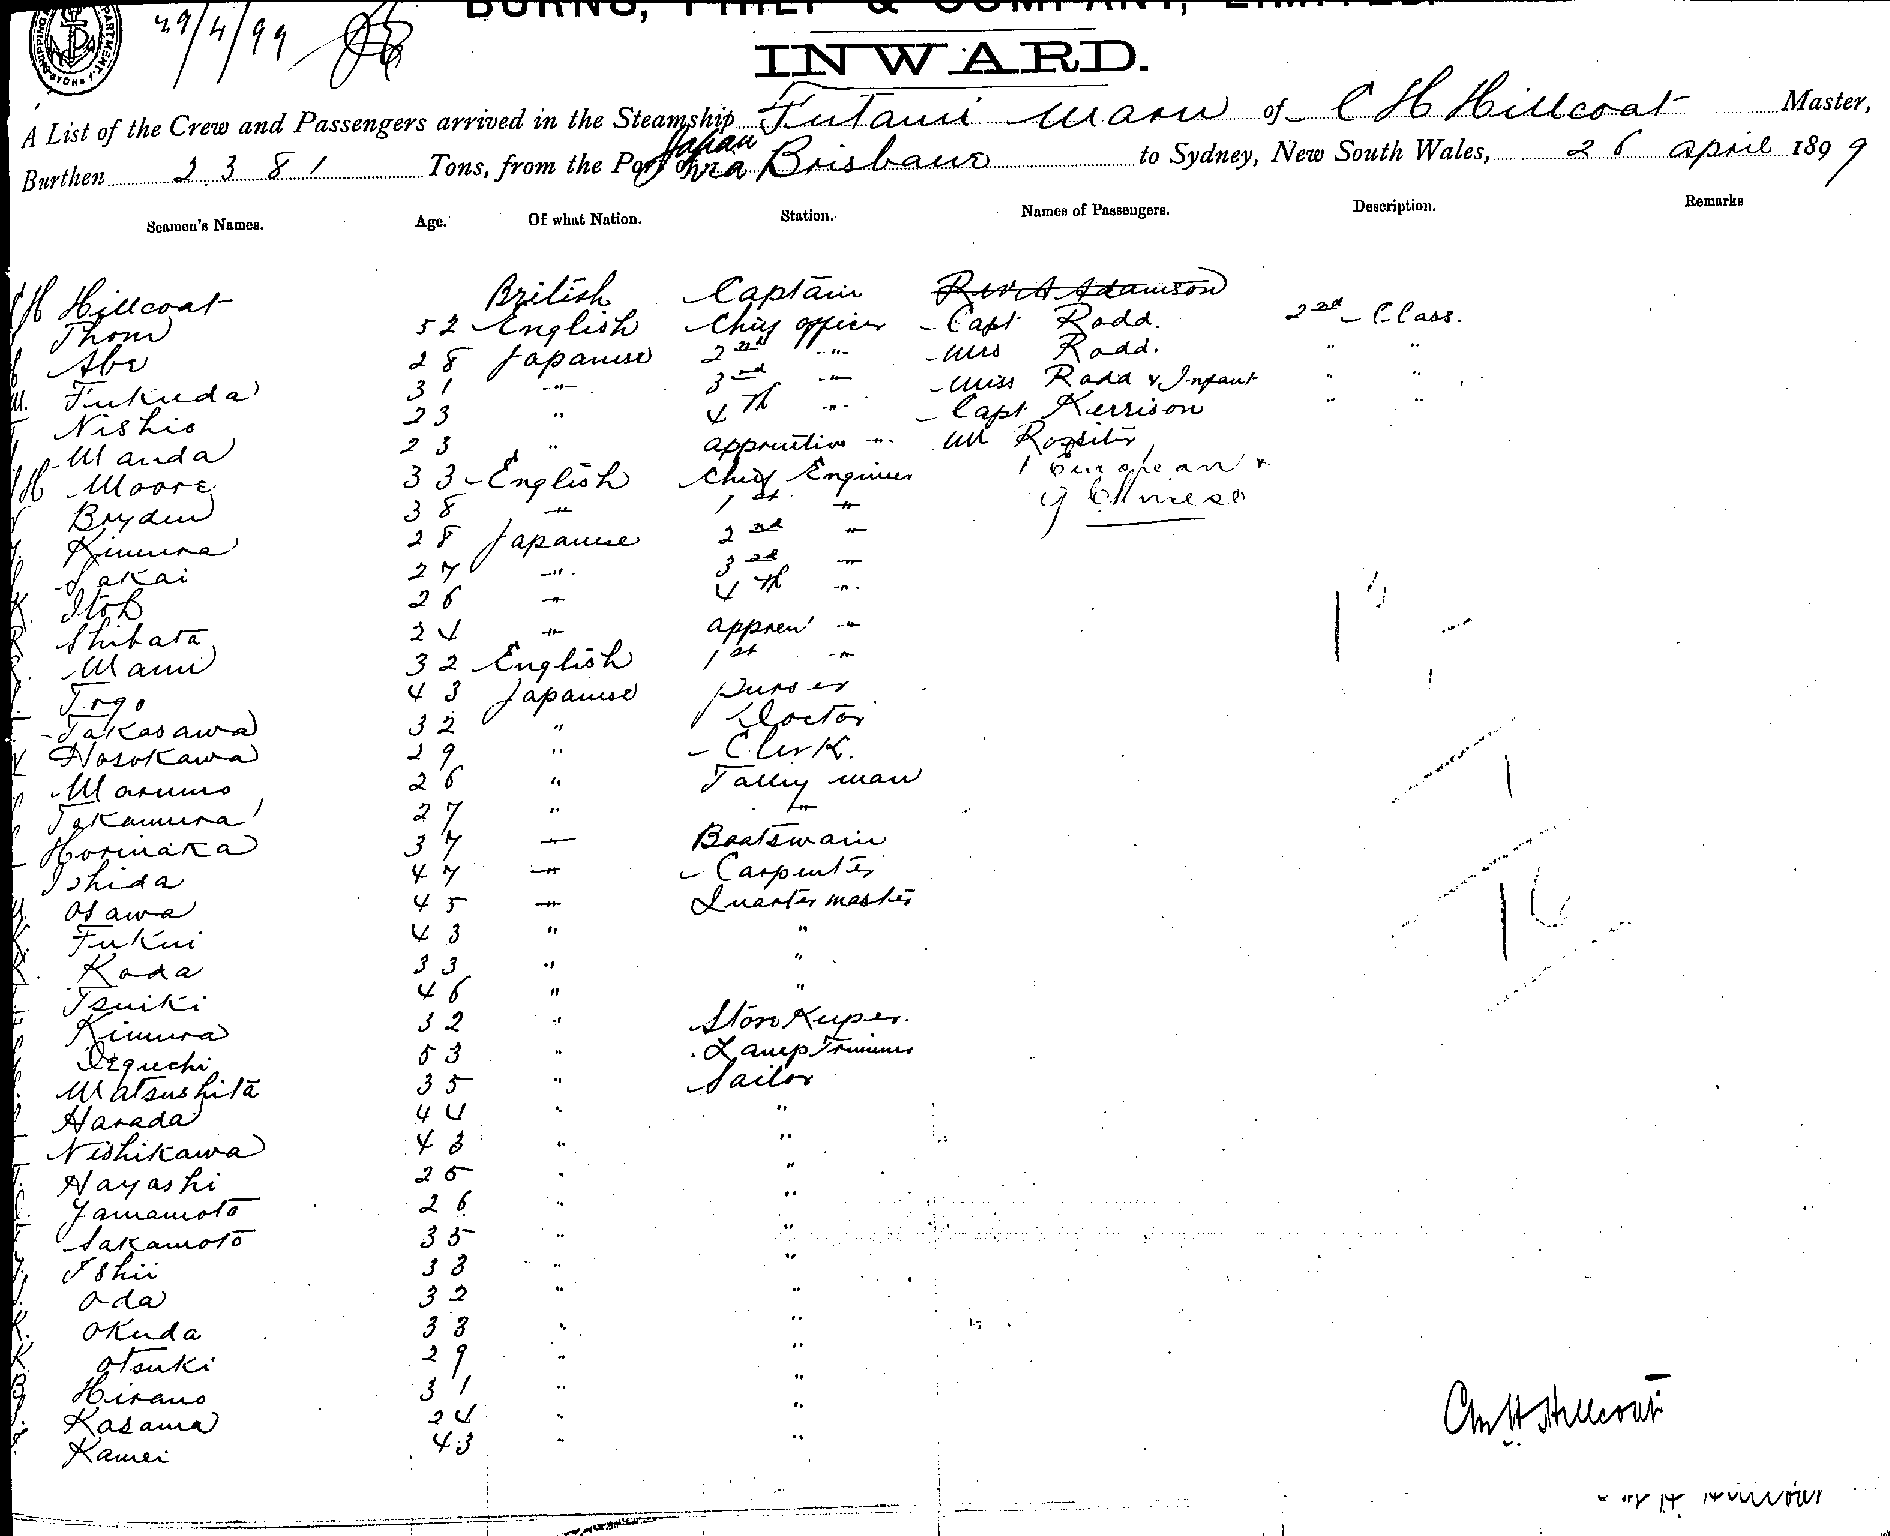 29/4/99
BURNS, PHILP & COMPANY, LIMITED.
INWARD.
A List of the Crew and Passengers arrived in the Steamship Futami Maru of C H Hillcoat Master,
Burthen 2381 Tons, from the Port of Japan via Brisbane to Sydney, New South Wales, 26 April 1899
Seamen's Names. Age. Of what Nation. Station. Names of Passengers. Description. Remarks
H Hillcoat British Captain Rev A Adamson
Thom 52 English Chief officer Capt Rodd. 2nd Class.
Abe 28 Japanese 2nd " Mrs Rodd. " "
Fukuda 31 " 3rd " Miss Rodd & Infant " "
Nishio 23 " 4th " Capt Kerrison " "
Manda 23 " apprentice " Mr Rossiter
H Moore 33 English Chief Engineer 1 European &
Boyden 38 " 1st " 9 Chinese
Kimura 28 Japanese 2nd "
Sakai 27 " 3rd "
K. Itoh 26 " 4th "
Shibata 24 " appren "
Mann 32 English 1st "
Togo 43 Japanese purser
Takasawa 32 " Doctor
Hosokawa 29 " Clerk.
Marumo 26 " Tally man
Takamura 27 " "
Horinaka 37 " Boatswain
Ishida 47 " Carpenter
Osawa 45 " Quartermaster
Fukui 43 " "
Koda 33 " "
Tsuiki 46 " "
Kimura 32 " Storekeeper.
Deguchi 53 " Lamp Trimmer
Matsushita 35 " Sailor
Harada 44 " "
Nishikawa 43 " "
Hayashi 25 " "
Yamamoto 26 " "
Sakamoto 35 " "
Ishii 33 " "
Oda 32 " "
Okuda 33 " "
Otsuki 29 " "
Hirano 31 " "
Kasama 24 " "
Kamei 43 " "
Chas H Hillcoat